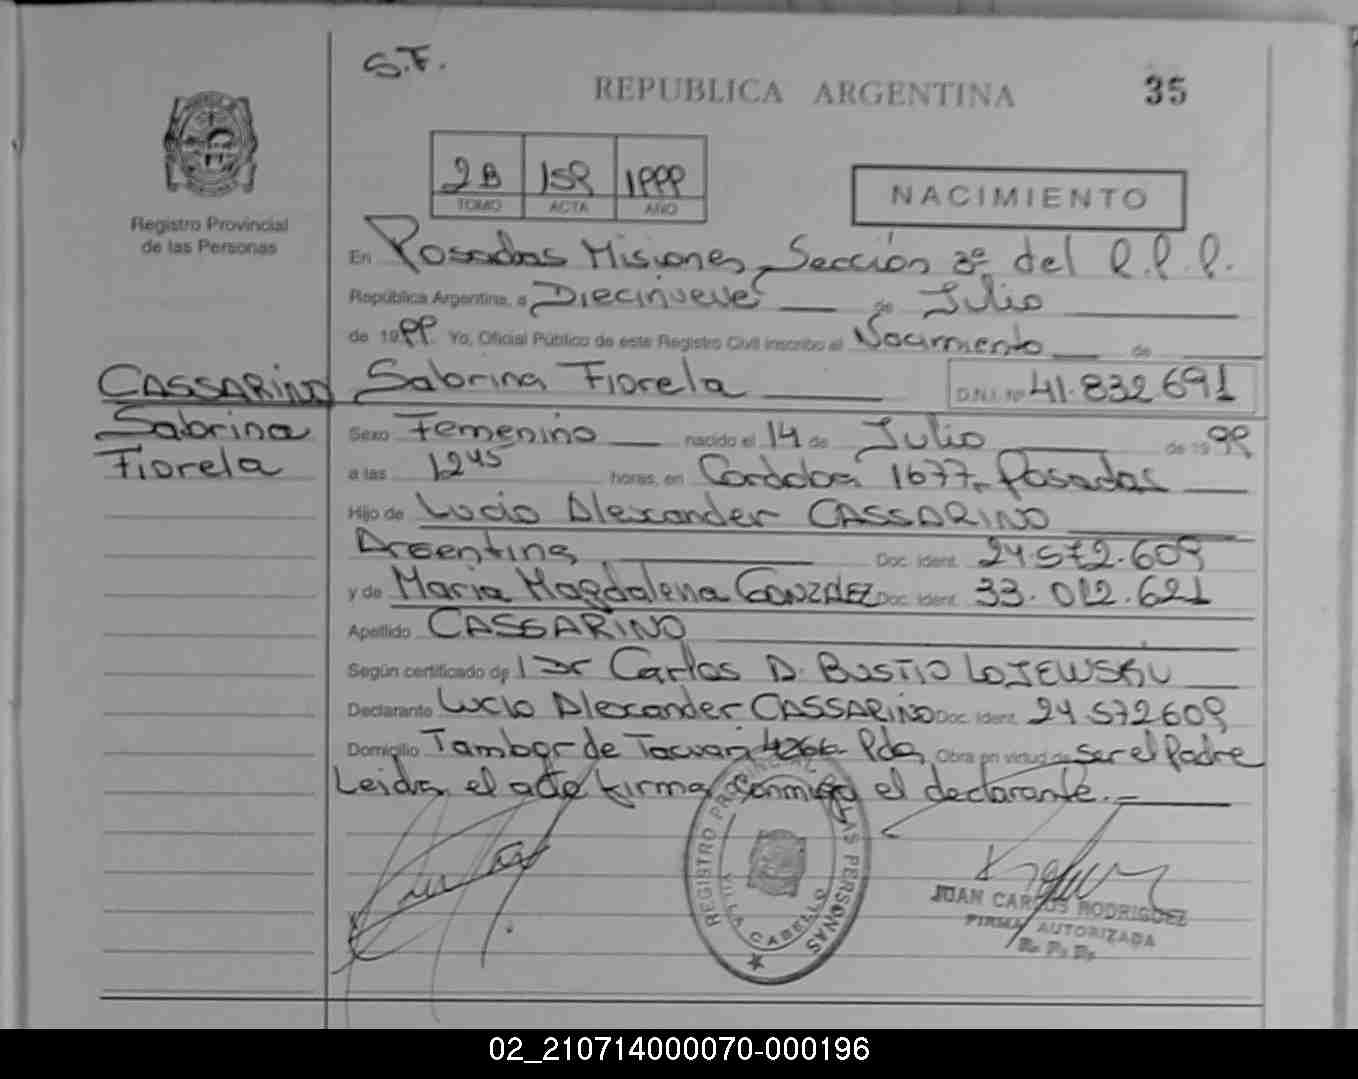 S.F.
REPUBLICA ARGENTINA
35
2B 159 1999
TOMO ACTA AÑO
NACIMIENTO
Registro Provincial
de las Personas
En Posadas Misiones, Sección 3º del R.P.P.
República Argentina, a Diecinueve de Julio
de 1999 Yo, Oficial Público de este Registro Civil inscribo el Nacimiento de
CASSARINO
Sabrina
Fiorela
Sabrina Fiorela D.N.I. Nº 41.832.691
Sexo Femenino nacido el 14 de Julio de 1999
a las 1245 horas, en Cordoba 1677, Posadas
Hijo de Lucio Alexander CASSARINO
Argentina Doc. Ident. 24.572.609
y de Maria Magdalena GONZALEZ Doc. Ident. 33.012.621
Apellido CASSARINO
Según certificado de Dr Carlos D. BUSTIO LOJEWSKI
Declarante Lucio Alexander CASSARINO Doc. Ident. 24.572609
Domicilio Tambor de Tacuari Pdas Obra en virtud de ser el Padre
Leida el acta firma conmigo el declarante.-
REGISTRO PROVINCIAL DE LAS PERSONAS
VILLA CABELLO
JUAN CARLOS RODRIGUEZ
FIRMA AUTORIZADA
R. P. P.
02_210714000070-000196